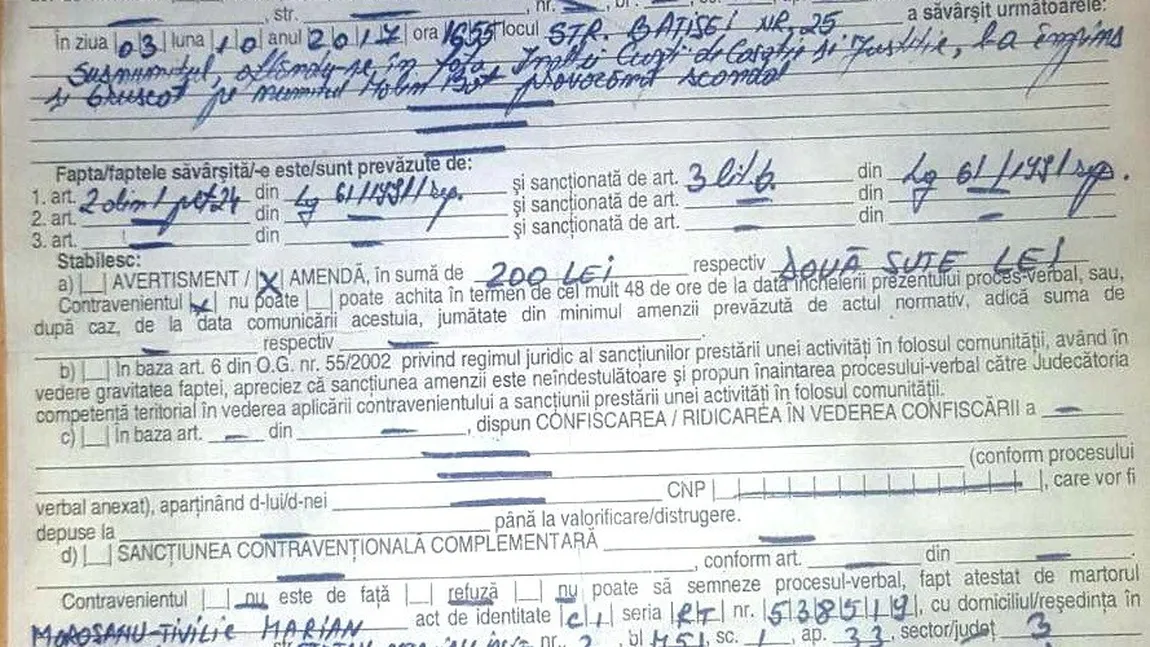 , str. nr. bl.
În ziua |0|3| luna |1|0| anul |2|0|1|7| ora 1655 locul STR. BATIȘEI NR. 25 a săvârșit următoarele:
Susnumitul, aflându-se în fața Înaltei Curți de Casație și Justiție, l-a împins
și bruscat pe numitul provocând scandal
Fapta/faptele săvârșită/-e este/sunt prevăzute de:
1. art. 2 alin 1 pct 24 din Lg 61/1991/rep. și sancționată de art. 3 lit b. din Lg 61/1991/rep.
2. art. din și sancționată de art. din
3. art. din și sancționată de art. din
Stabilesc:
a) |_| AVERTISMENT / |X| AMENDĂ, în sumă de 200 LEI respectiv DOUĂ SUTE LEI
Contravenientul |x| nu poate |_| poate achita în termen de cel mult 48 de ore de la data încheierii prezentului proces-verbal, sau,
după caz, de la data comunicării acestuia, jumătate din minimul amenzii prevăzută de actul normativ, adică suma de
respectiv .
b) |_| În baza art. 6 din O.G. nr. 55/2002 privind regimul juridic al sancțiunilor prestării unei activități în folosul comunității, având în
vedere gravitatea faptei, apreciez că sancțiunea amenzii este neîndestulătoare și propun înaintarea procesului-verbal către Judecătoria
competentă teritorial în vederea aplicării contravenientului a sancțiunii prestării unei activități în folosul comunității.
c) |_| În baza art. din , dispun CONFISCAREA / RIDICAREA ÎN VEDEREA CONFISCĂRII a
(conform procesului
verbal anexat), aparținând d-lui/d-nei CNP , care vor fi
depuse la până la valorificare/distrugere.
d) |_| SANCȚIUNEA CONTRAVENȚIONALĂ COMPLEMENTARĂ
, conform art. din .
Contravenientul |_| nu este de față |_| refuză |_| nu poate să semneze procesul-verbal, fapt atestat de martorul
MOROȘANU-TIVILIE MARIAN act de identitate |C|I| seria |R|T| nr. |5|3|8|5|1|9|, cu domiciliul/reședința în
str. nr. 2 bl M51, sc. 1, ap. 33, sector/județ 3